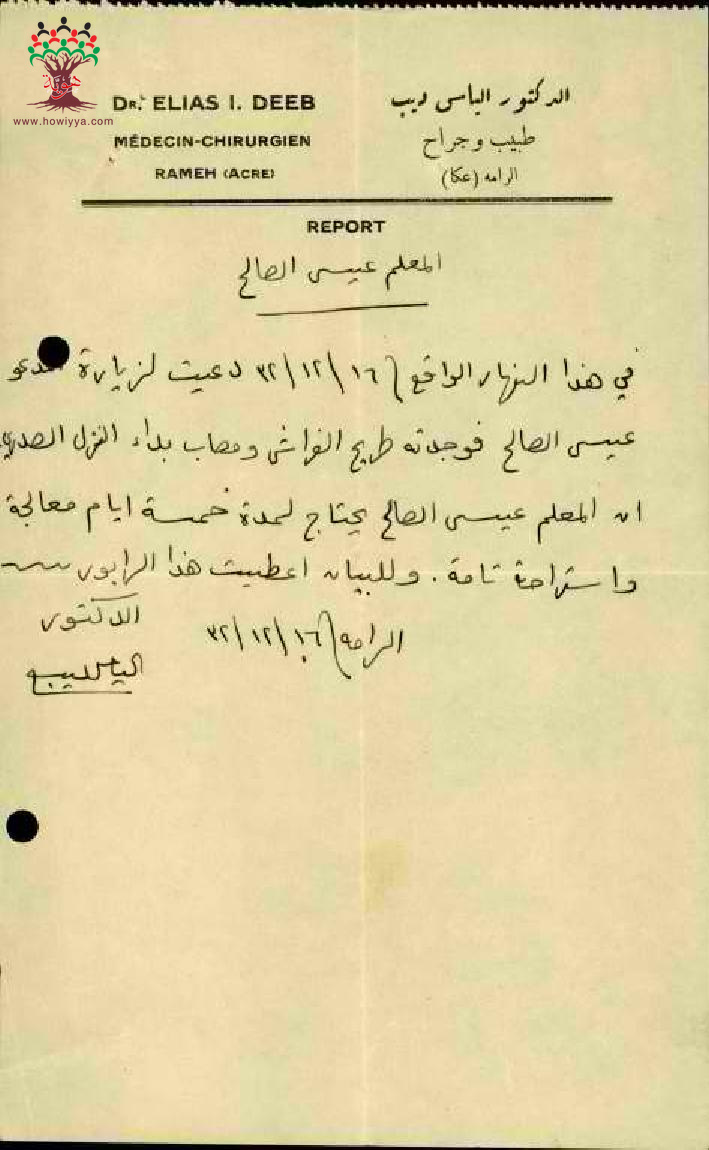 هوية
www.howiyya.com
DR. ELIAS I. DEEB
MÉDECIN-CHIRURGIEN
RAMEH (ACRE)
الدكتور الياس ديب
طبيب وجراح
الرامه (عكا)
REPORT
المعلم عيسى الصالح
في هذا النهار الواقع ١٦\١٢\٣٢ دعيت لزيارة
عيسى الصالح فوجدته طريح الفراش ومصاب بداء النزل الصدري
ان المعلم عيسى الصالح يحتاج لمدة خمسة ايام معالجة
واستراحة تامة. وللبيان اعطيت هذا الرابور
الدكتور
الرامه ١٦\١٢\٣٢
الياس ديب